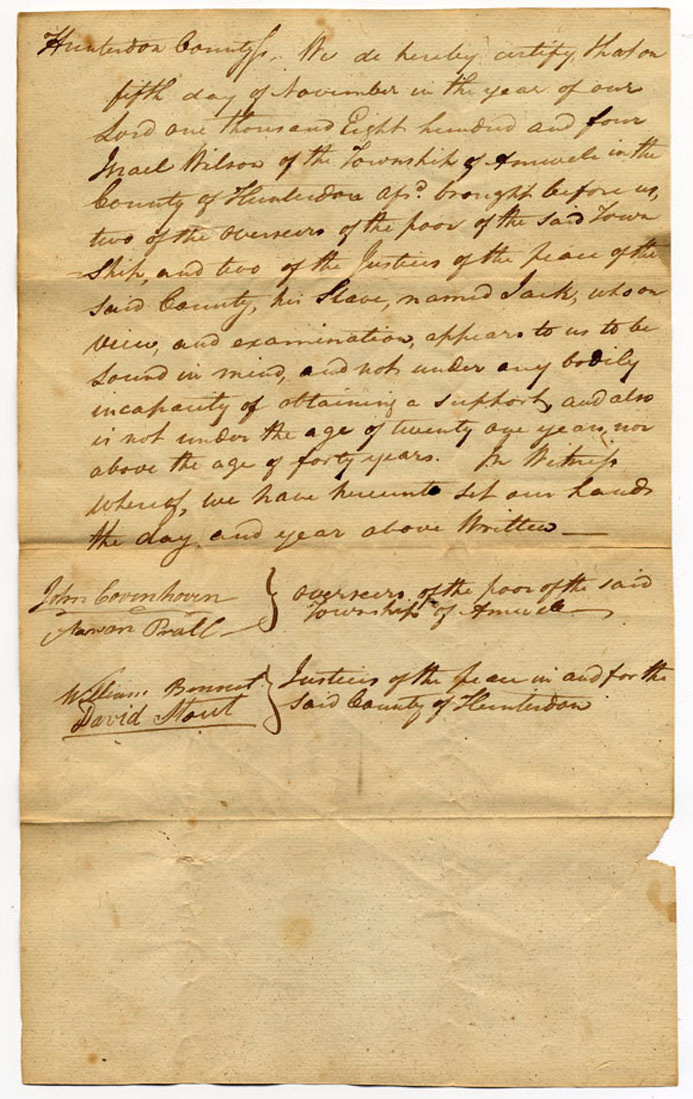 Hunterdon County ss. We do hereby certify that on
fifth day of November in the year of our
Lord one thousand Eight hundred and four
Israel Wilson of the Township of Amwell in the
County of Hunterdon afsd. brought before us,
two of the overseers of the poor of the said Town
ship, and two of the Justices of the peace of the
said County, his Slave, named Jack, who on
view, and examination, appears to us to be
sound in mind, and not under any bodily
incapacity of obtaining a support, and also
is not under the age of twenty one years, nor
above the age of forty years. In Witness
whereof, we have hereunto set our hands
the day and year above Written
John Covenhoven } overseers of the poor of the said
Aaron Prall } Township of Amwell
William Bonnet } Justices of the peace in and for the
David Stout } said County of Hunterdon